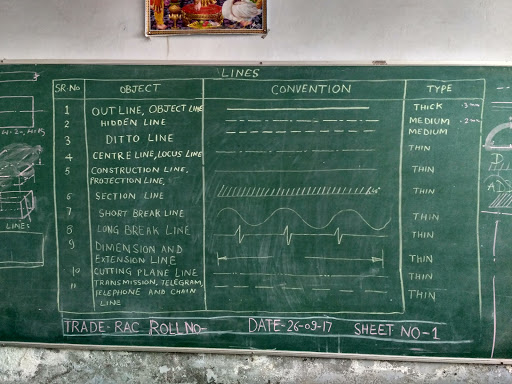 LINES
SR.No OBJECT CONVENTION TYPE
1 OUT LINE, OBJECT LINE THICK .3
2 HIDDEN LINE MEDIUM .2
3 DITTO LINE MEDIUM
4 CENTRE LINE, LOCUS LINE THIN
5 CONSTRUCTION LINE, THIN
PROJECTION LINE,
6 SECTION LINE 45° THIN
7 SHORT BREAK LINE THIN
8 LONG BREAK LINE THIN
9 DIMENSION AND
EXTENSION LINE THIN
10 CUTTING PLANE LINE THIN
11 TRANSMISSION, TELEGRAM,
TELEPHONE AND CHAIN THIN
LINE
TRADE- RAC ROLL NO- DATE-26-09-17 SHEET NO-1
LINES
D